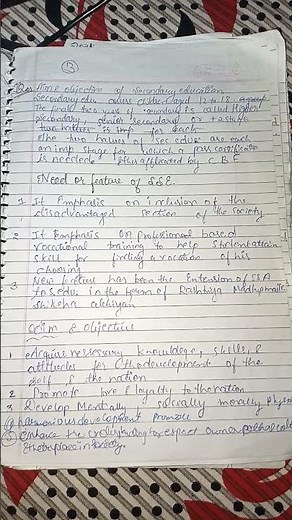 13
Q. More objective of Secondary education
Secondary edu. covers children aged 12 to 18
The final two years of secondary is called Higher
Secondary, senior secondary or +2 stage
two halves is imp for each
the two halves of sec edu. are each
an imp stage for which a pass certificate
is needed affiliated by C.B.
Need or feature of S.S.E.
1 It Emphasis on inclusion of the
disadvantaged section of the society
2 It Emphasis on professional based
vocational training to help student attain
skill for finding a vocation of his
choosing
3 New feature has been the Extension of SSA
to s.edu. in the form of Rashtriya Madhyamik
Shiksha
Aim & Objective
1 Acquire necessary knowledge, skills, &
attitudes for development of the
self & the nation
2 Promote love & loyalty to the nation
3 Develop Mentally socially morally
harmonious development
5 Enhance the understanding & respect own
& their place in